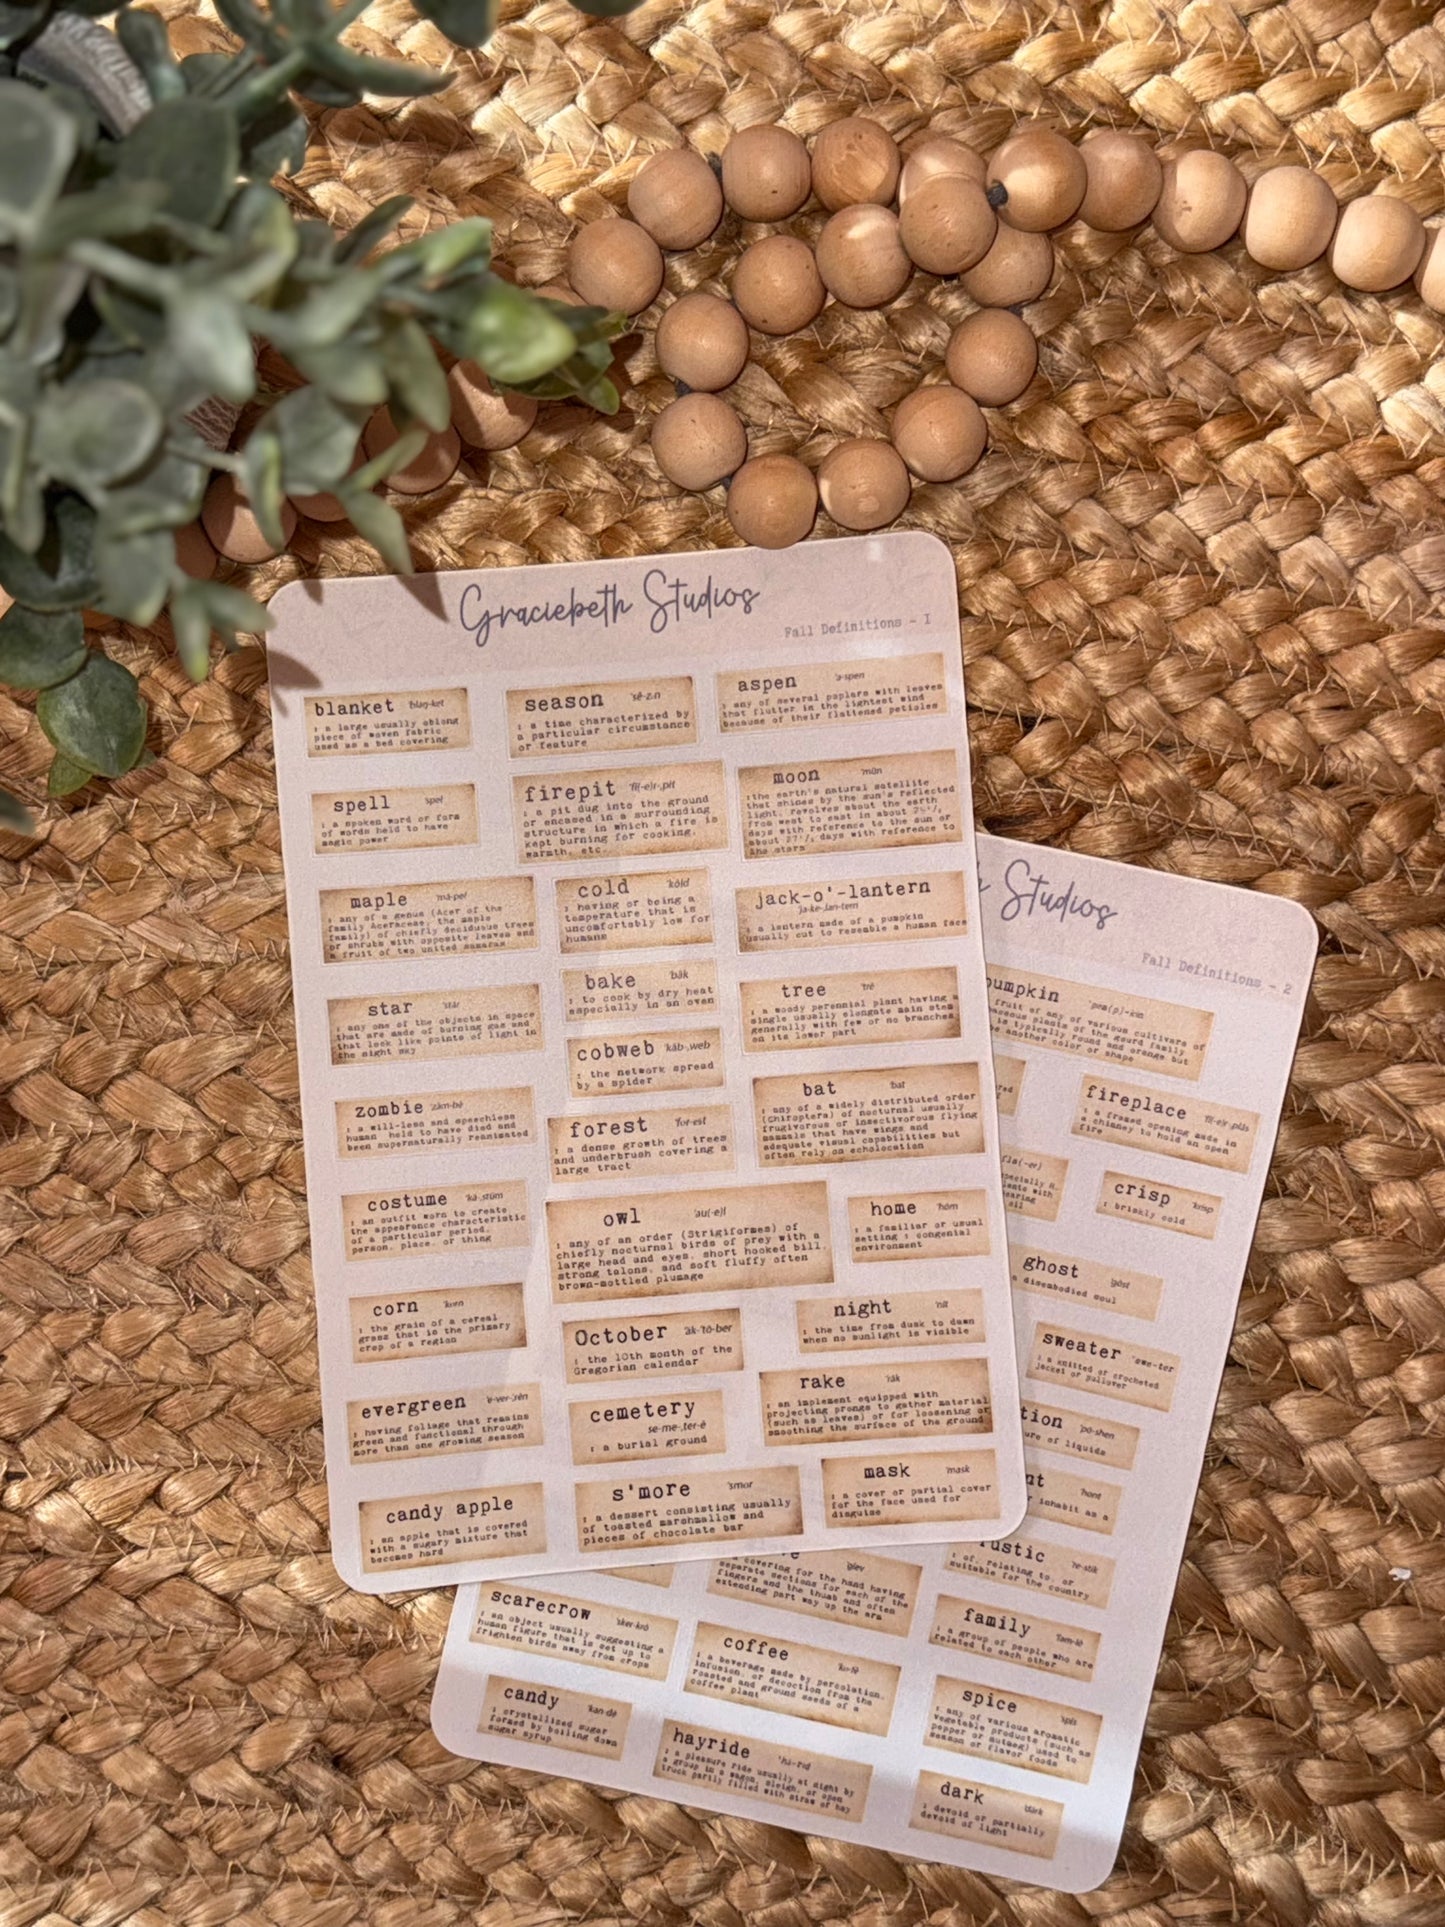 Graciebeth Studios
Fall Definitions - 1
blanket 'blaŋ-ket
: a large usually oblong
piece of woven fabric
used as a bed covering
season 'sē-z:n
: a time characterized by
a particular circumstance
or feature
aspen 'a-spen
: any of several poplars with leaves
that flutter in the lightest wind
because of their flattened petioles
spell 'spel
: a spoken word or form
of words held to have
magic power
firepit 'fī(-e)r-,pit
: a pit dug into the ground
or encased in a surrounding
structure in which a fire is
kept burning for cooking,
warmth, etc.
moon 'mün
:the earth's natural satellite
that shines by the sun's reflected
light, revolves about the earth
from west to east in about 29¹/₂
days with reference to the sun or
about 27¹/₃ days with reference to
the stars
maple 'mā-pel
: any of a genus (Acer of the
family Aceraceae, the maple
family) of chiefly deciduous trees
or shrubs with opposite leaves and
a fruit of two united samaras
cold 'kōld
: having or being a
temperature that is
uncomfortably low for
humans
jack-o'-lantern
'ja-ke-,lan-tern
: a lantern made of a pumpkin
usually cut to resemble a human face
star 'stär
: any one of the objects in space
that are made of burning gas and
that look like points of light in
the night sky
bake 'bāk
: to cook by dry heat
especially in an oven
tree 'trē
: a woody perennial plant having a
single usually elongate main stem
generally with few or no branches
on its lower part
cobweb 'käb-,web
: the network spread
by a spider
zombie 'zäm-bē
: a will-less and speechless
human held to have died and
been supernaturally reanimated
forest 'for-est
: a dense growth of trees
and underbrush covering a
large tract
bat 'bat
: any of a widely distributed order
(Chiroptera) of nocturnal usually
frugivorous or insectivorous flying
mammals that have wings and
adequate visual capabilities but
often rely on echolocation
costume 'kä-,stüm
: an outfit worn to create
the appearance characteristic
of a particular period,
person, place, or thing
owl 'au(-e)l
: any of an order (Strigiformes) of
chiefly nocturnal birds of prey with a
large head and eyes, short hooked bill,
strong talons, and soft fluffy often
brown-mottled plumage
home 'hōm
: a familiar or usual
setting : congenial
environment
corn 'korn
: the grain of a cereal
grass that is the primary
crop of a region
October äk-'tō-ber
: the 10th month of the
Gregorian calendar
night 'nīt
: the time from dusk to dawn
when no sunlight is visible
evergreen 'e-ver-,grēn
: having foliage that remains
green and functional through
more than one growing season
cemetery
'se-me-,ter-ē
: a burial ground
rake 'rāk
: an implement equipped with
projecting prongs to gather material
(such as leaves) or for loosening or
smoothing the surface of the ground
candy apple
: an apple that is covered
with a sugary mixture that
becomes hard
s'more 'smor
: a dessert consisting usually
of toasted marshmallow and
pieces of chocolate bar
mask 'mask
: a cover or partial cover
for the face used for
disguise
h Studios
Fall Definitions - 2
pumpkin 'pəm(p)-kin
fruit of any of various cultivars of
plants of the gourd family
is typically round and orange but
another color or shape
fireplace 'fī(-e)r-,plās
: a framed opening made in
a chimney to hold an open
fire
specially
with
oil
crisp 'krisp
: briskly cold
ghost 'gōst
a disembodied soul
sweater 'swe-ter
: a knitted or crocheted
jacket or pullover
tion 'pō-shen
ure of liquids
nt 'hont
inhabit as a
rustic 're-stik
: of, relating to, or
suitable for the country
'glev
a covering for the hand having
separate sections for each of the
fingers and the thumb and often
extending part way up the arm
scarecrow 'sker-krō
: an object usually suggesting a
human figure that is set up to
frighten birds away from crops
coffee 'ko-fē
: a beverage made by percolation,
infusion, or decoction from the
roasted and ground seeds of a
coffee plant
family 'fam-lē
: a group of people who are
related to each other
candy 'kan-dē
: crystallized sugar
formed by boiling down
sugar syrup
hayride 'hā-rīd
: a pleasure ride usually at night by
a group in a wagon, sleigh, or open
truck partly filled with straw or hay
spice 'spīs
: any of various aromatic
vegetable products (such as
pepper or nutmeg) used to
season or flavor foods
dark 'därk
: devoid or partially
devoid of light